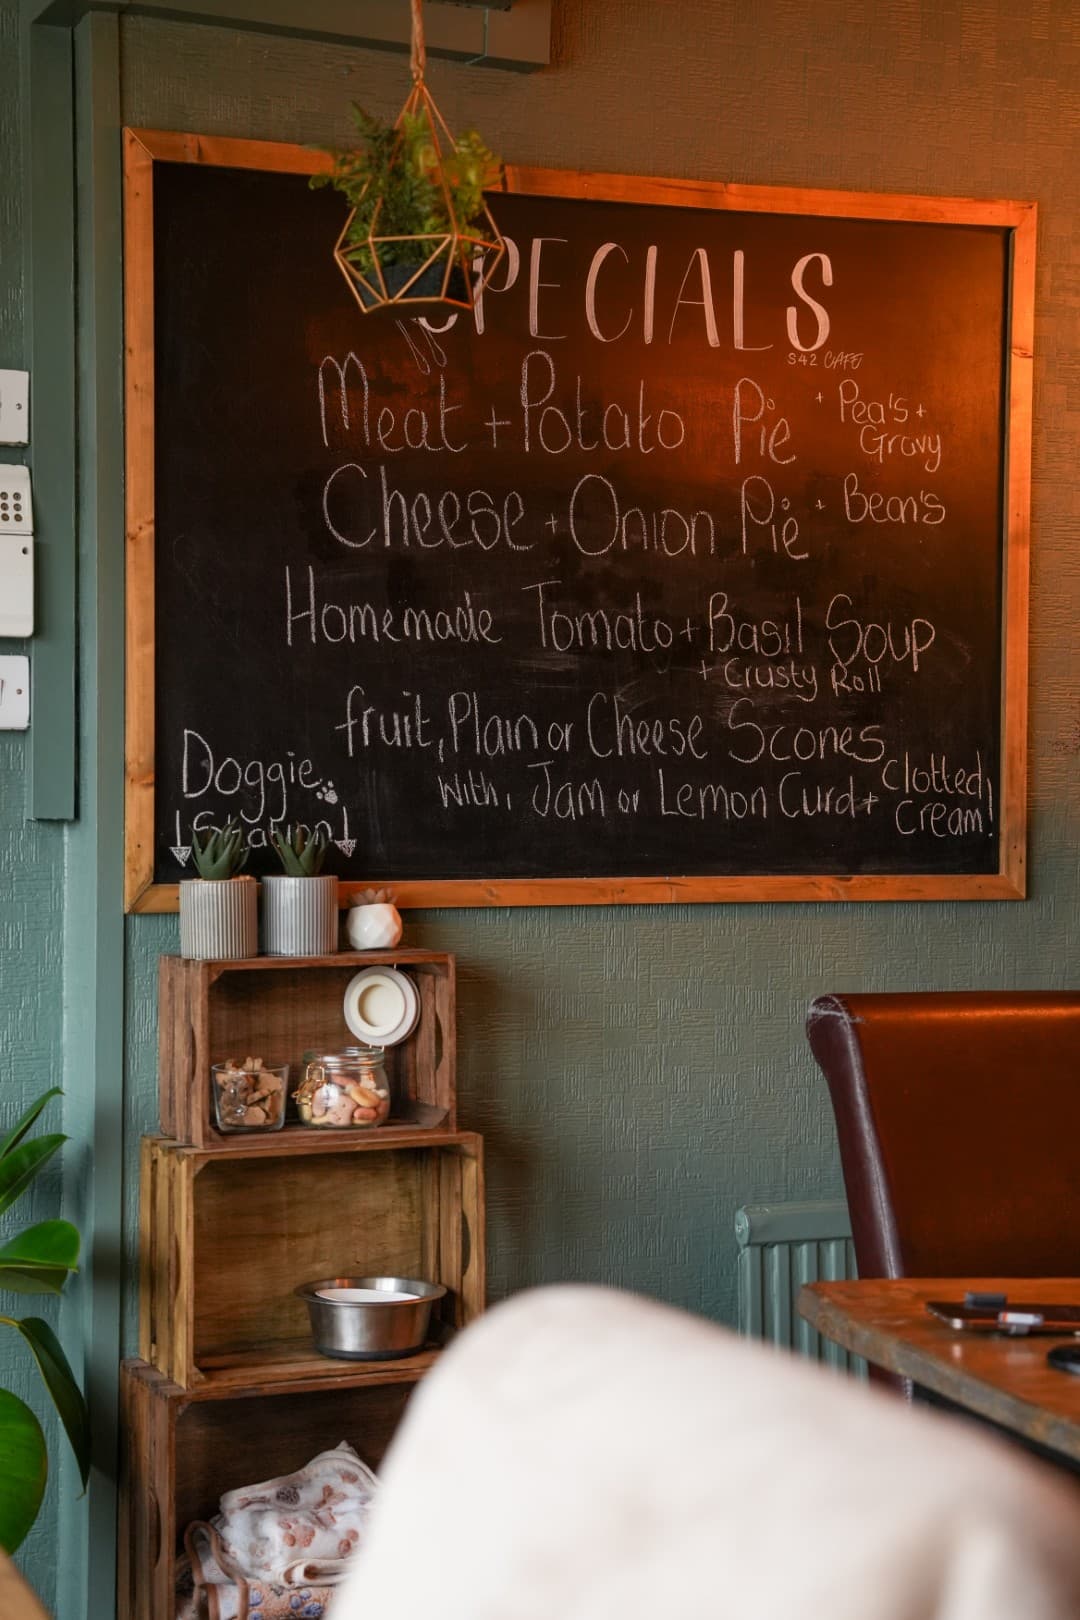 SPECIALS
S42 CAFE
Meat + Potato Pie + Pea's +
Gravy
Cheese + Onion Pie + Bean's
Homemade Tomato + Basil Soup
+ Crusty Roll
fruit, Plain or Cheese Scones
with, Jam or Lemon Curd + Clotted
Cream!
Doggie
Station